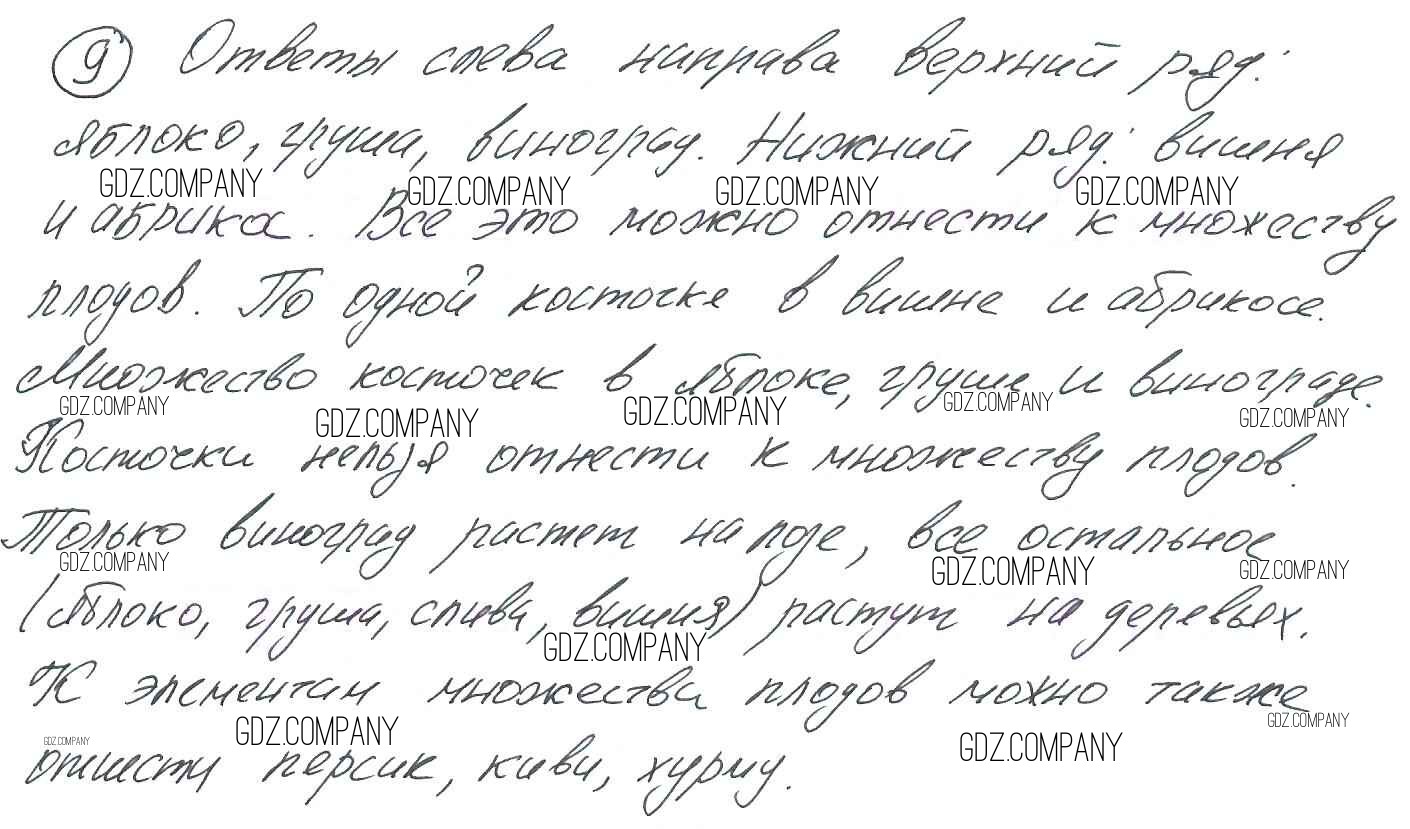 9 Ответы слева направа верхний ряд:
яблоко, груша, виноград. Нижний ряд: вишня
GDZ.COMPANY GDZ.COMPANY GDZ.COMPANY GDZ.COMPANY
и абрикос. Все это можно отнести к множеству
плодов. По одной косточке в вишне и абрикосе.
Множество косточек в яблоке, груше и винограде.
GDZ.COMPANY GDZ.COMPANY GDZ.COMPANY GDZ.COMPANY GDZ.COMPANY
Косточки нельзя отнести к множеству плодов.
Только виноград растет на лозе, все остальное
GDZ.COMPANY GDZ.COMPANY GDZ.COMPANY
(яблоко, груша, слива, вишня) растут на деревьях.
GDZ.COMPANY
К элементам множества плодов можно также
GDZ.COMPANY GDZ.COMPANY GDZ.COMPANY GDZ.COMPANY
отнести персик, киви, хурму.